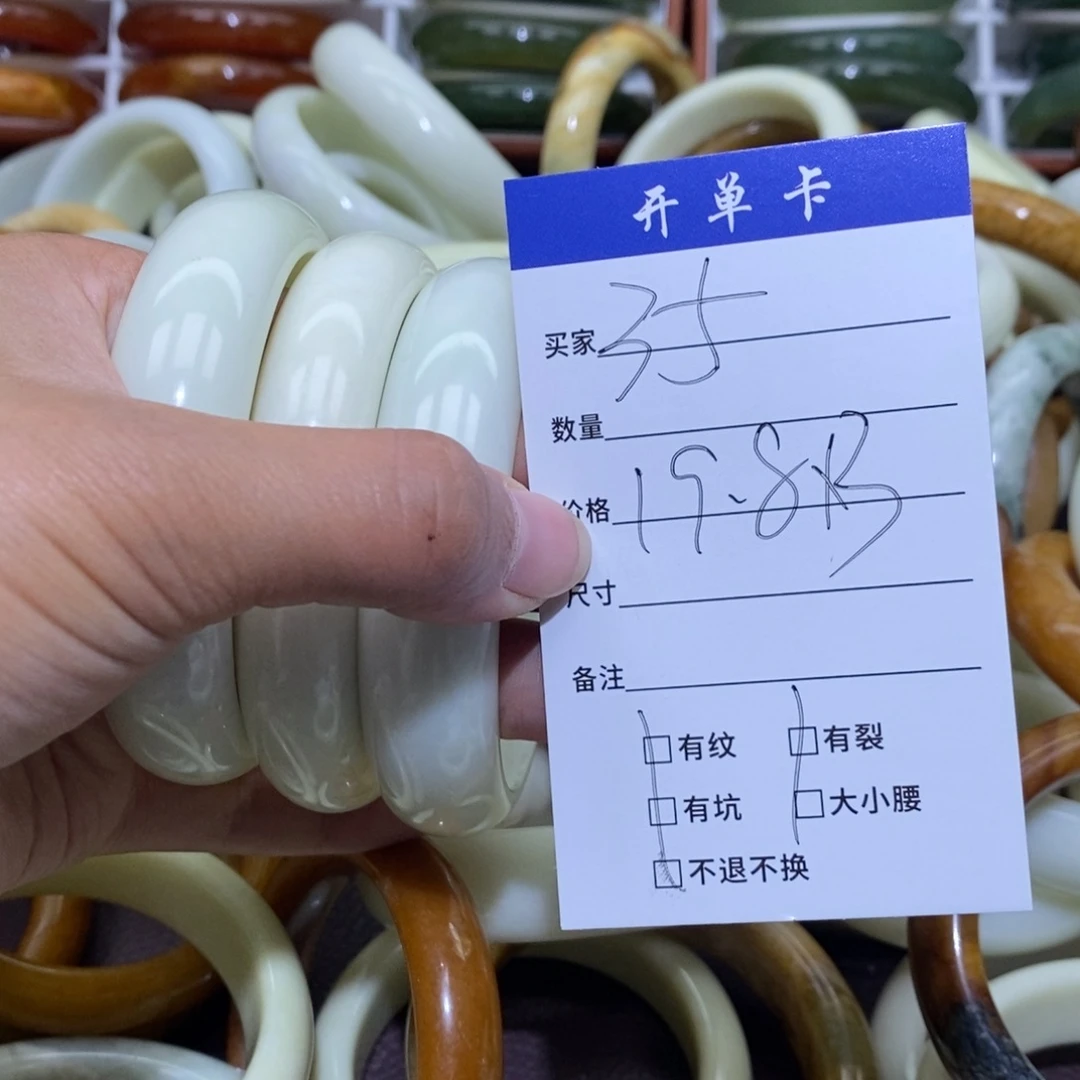 开单卡
买家
数量
价格 19.8
尺寸
备注
有纹 有裂
有坑 大小腰
不退不换